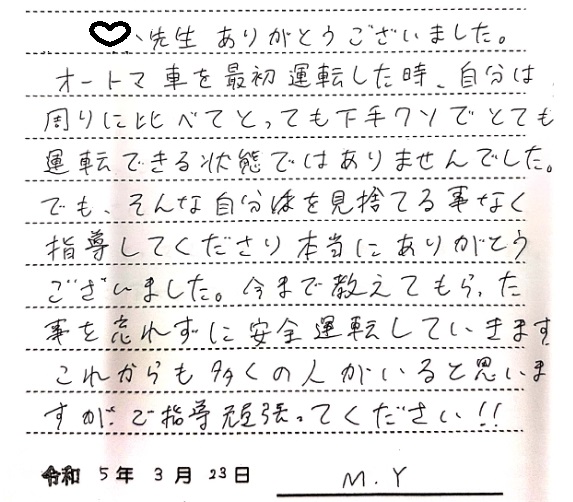 ♡先生 ありがとうございました。
オートマ車を最初運転した時、自分は
周りに比べてとっても下手クソでとても
運転できる状態ではありませんでした。
でも、そんな自分を見捨てる事なく
指導してくださり本当にありがとう
ございました。今まで教えてもらった
事を忘れずに安全運転していきます
これからも多くの人がいると思いま
すが、ご指導頑張ってください!!
令和 5年 3月 23日
M.Y